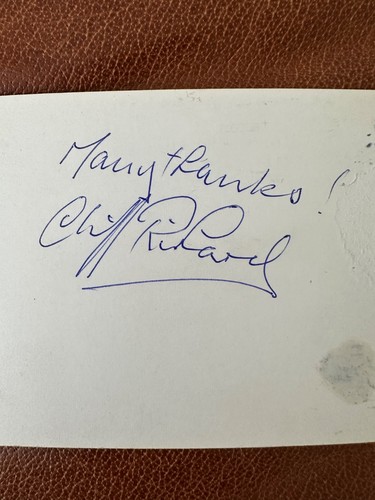 Many thanks!
Cliff Richard